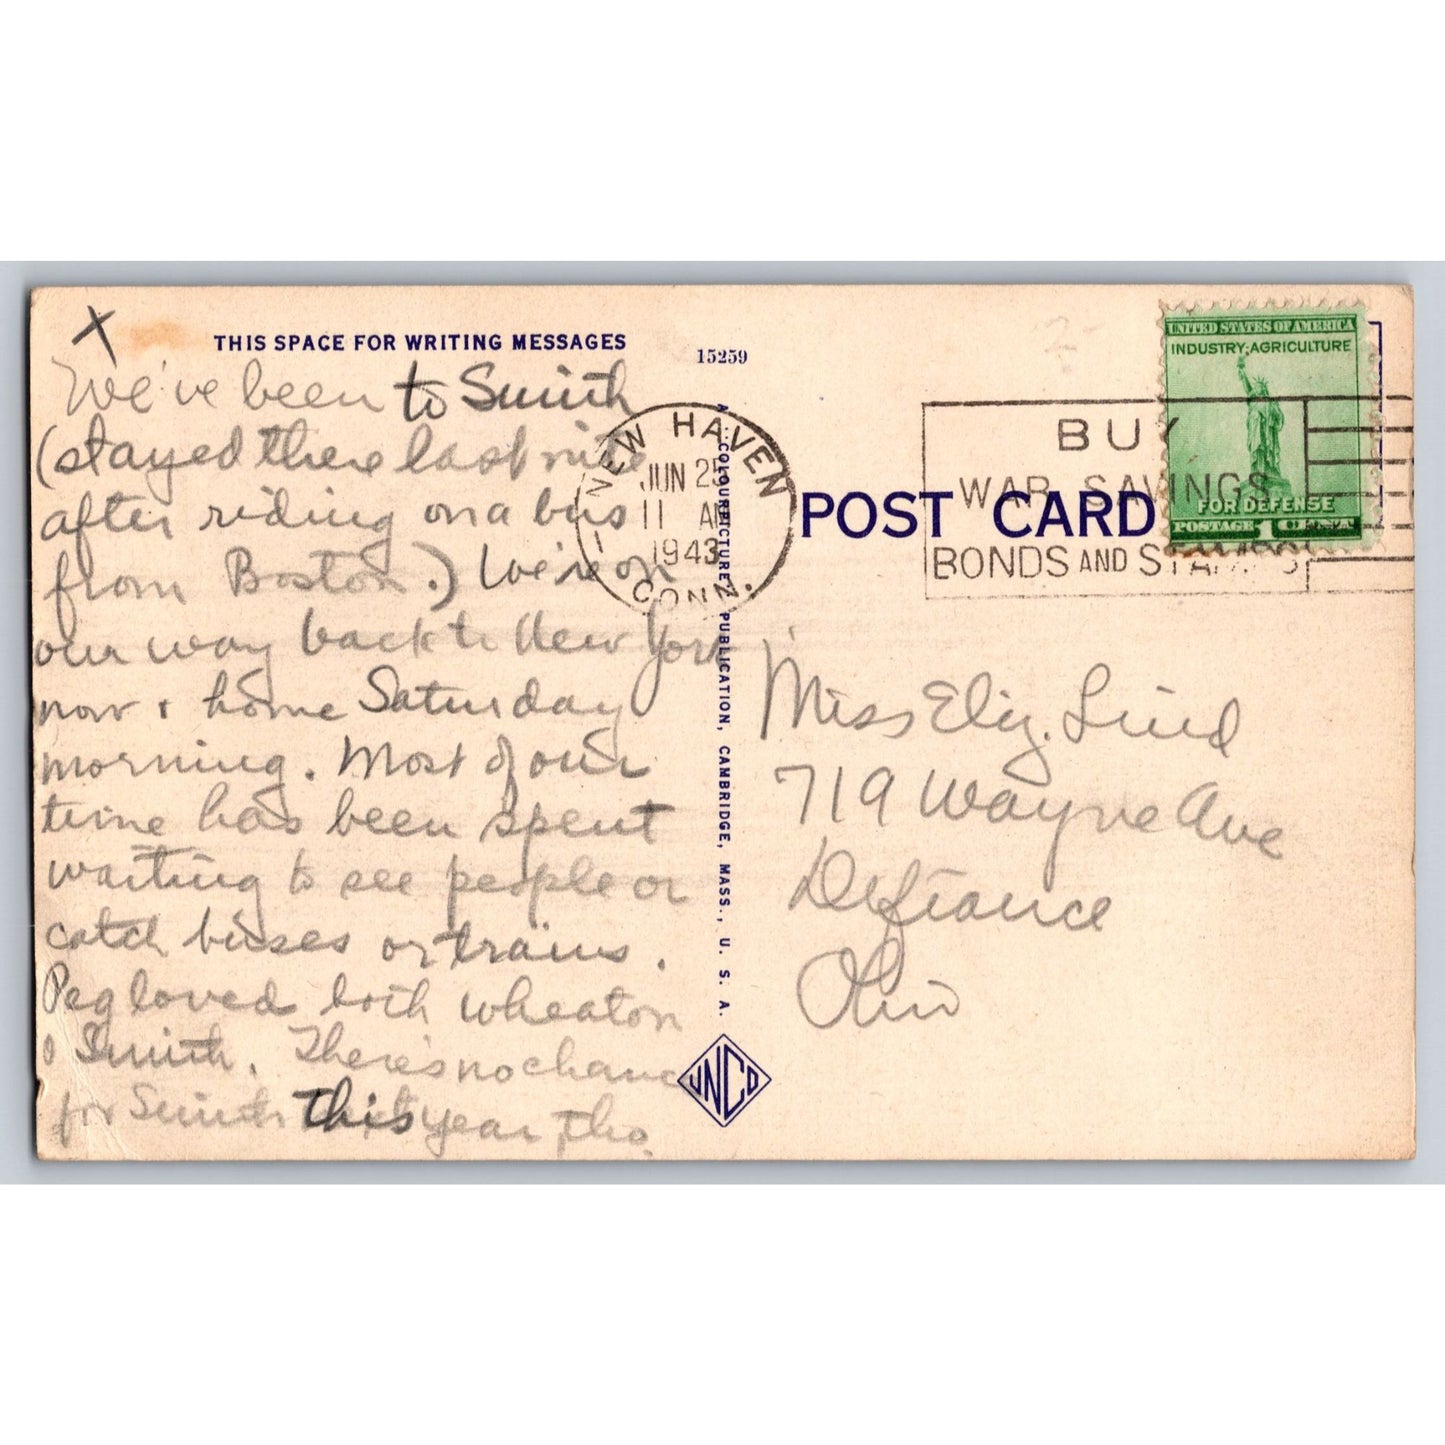 X
THIS SPACE FOR WRITING MESSAGES
15259
We've been to Smith
(stayed there last nite
after riding on a bus
from Boston.) We're on
our way back to New York
now & home Saturday
morning. Most of our
time has been spent
waiting to see people or
catch buses or trains.
Peg loved both Wheaton
& Smith. There's no chance
for Smith this year, tho.
NEW HAVEN
JUN 25
11 AM
1943
CONN.
COLOURPICTURE PUBLICATION, CAMBRIDGE, MASS., U. S. A.
JNCO
POST CARD
BUY
WAR SAVINGS
BONDS AND STAMPS
UNITED STATES OF AMERICA
INDUSTRY AGRICULTURE
FOR DEFENSE
POSTAGE 1 CENT
Miss Eliz. Lind
719 Wayne Ave
Defiance
Ohio